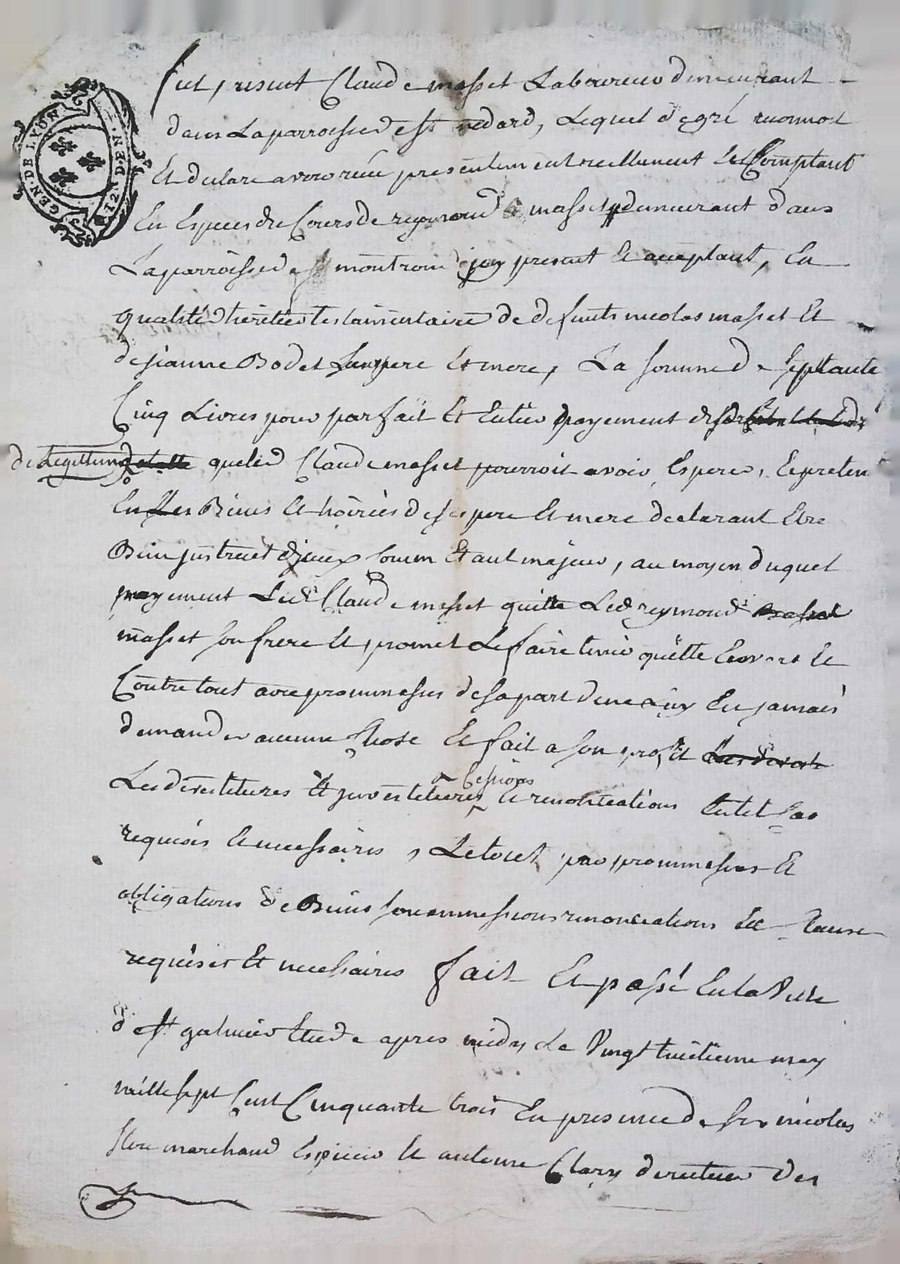 GEN DE LYON
12 D E N
fut present Claude masset Laboureur demeurant
dans La parroisse de st medard, Lequel de gré reconnoit
Et declare avoir receu presentement reellement et Comptant
En Especes de Cours de reymond masset demeurant dans
La parroisse de st montrond present et acceptant, En
qualité d'heritier testamentaire de defunts nicolas masset Et
de jeanne Bodet pere Et mere, La somme de septante
Cinq Livres pour parfait Et Entier payement
de Legittime que led Claude masset pourroit avoir Esperer, Et preten
En Les Biens et hoiries de ses pere Et mere declarant Etre
Bien instruit d'jceux Comm Etant majeur, au moyen duquel
payement Led Claude masset quitte Led reymond
masset son frere Et promet Le faire tenir quitte Envers Et
Contre tout avec prommesses de sa part de ne luy En jamais
demander aucune Chose Et fait a son profit
Les devestitures Et jnvestitures Cessions et renonciations En tel Cas
requises et necessaires, Le tout par prommesses Et
obligations de Biens soummissions renonciations Et Clauses
requises Et necessaires fait Et passé En la Ville
de st galmier Etude apres midy Le Vingt huitieme may
mille sept Cent Cinquante trois En presence de Sr nicolas
marchand Espicier Et antoine Clary directeur des